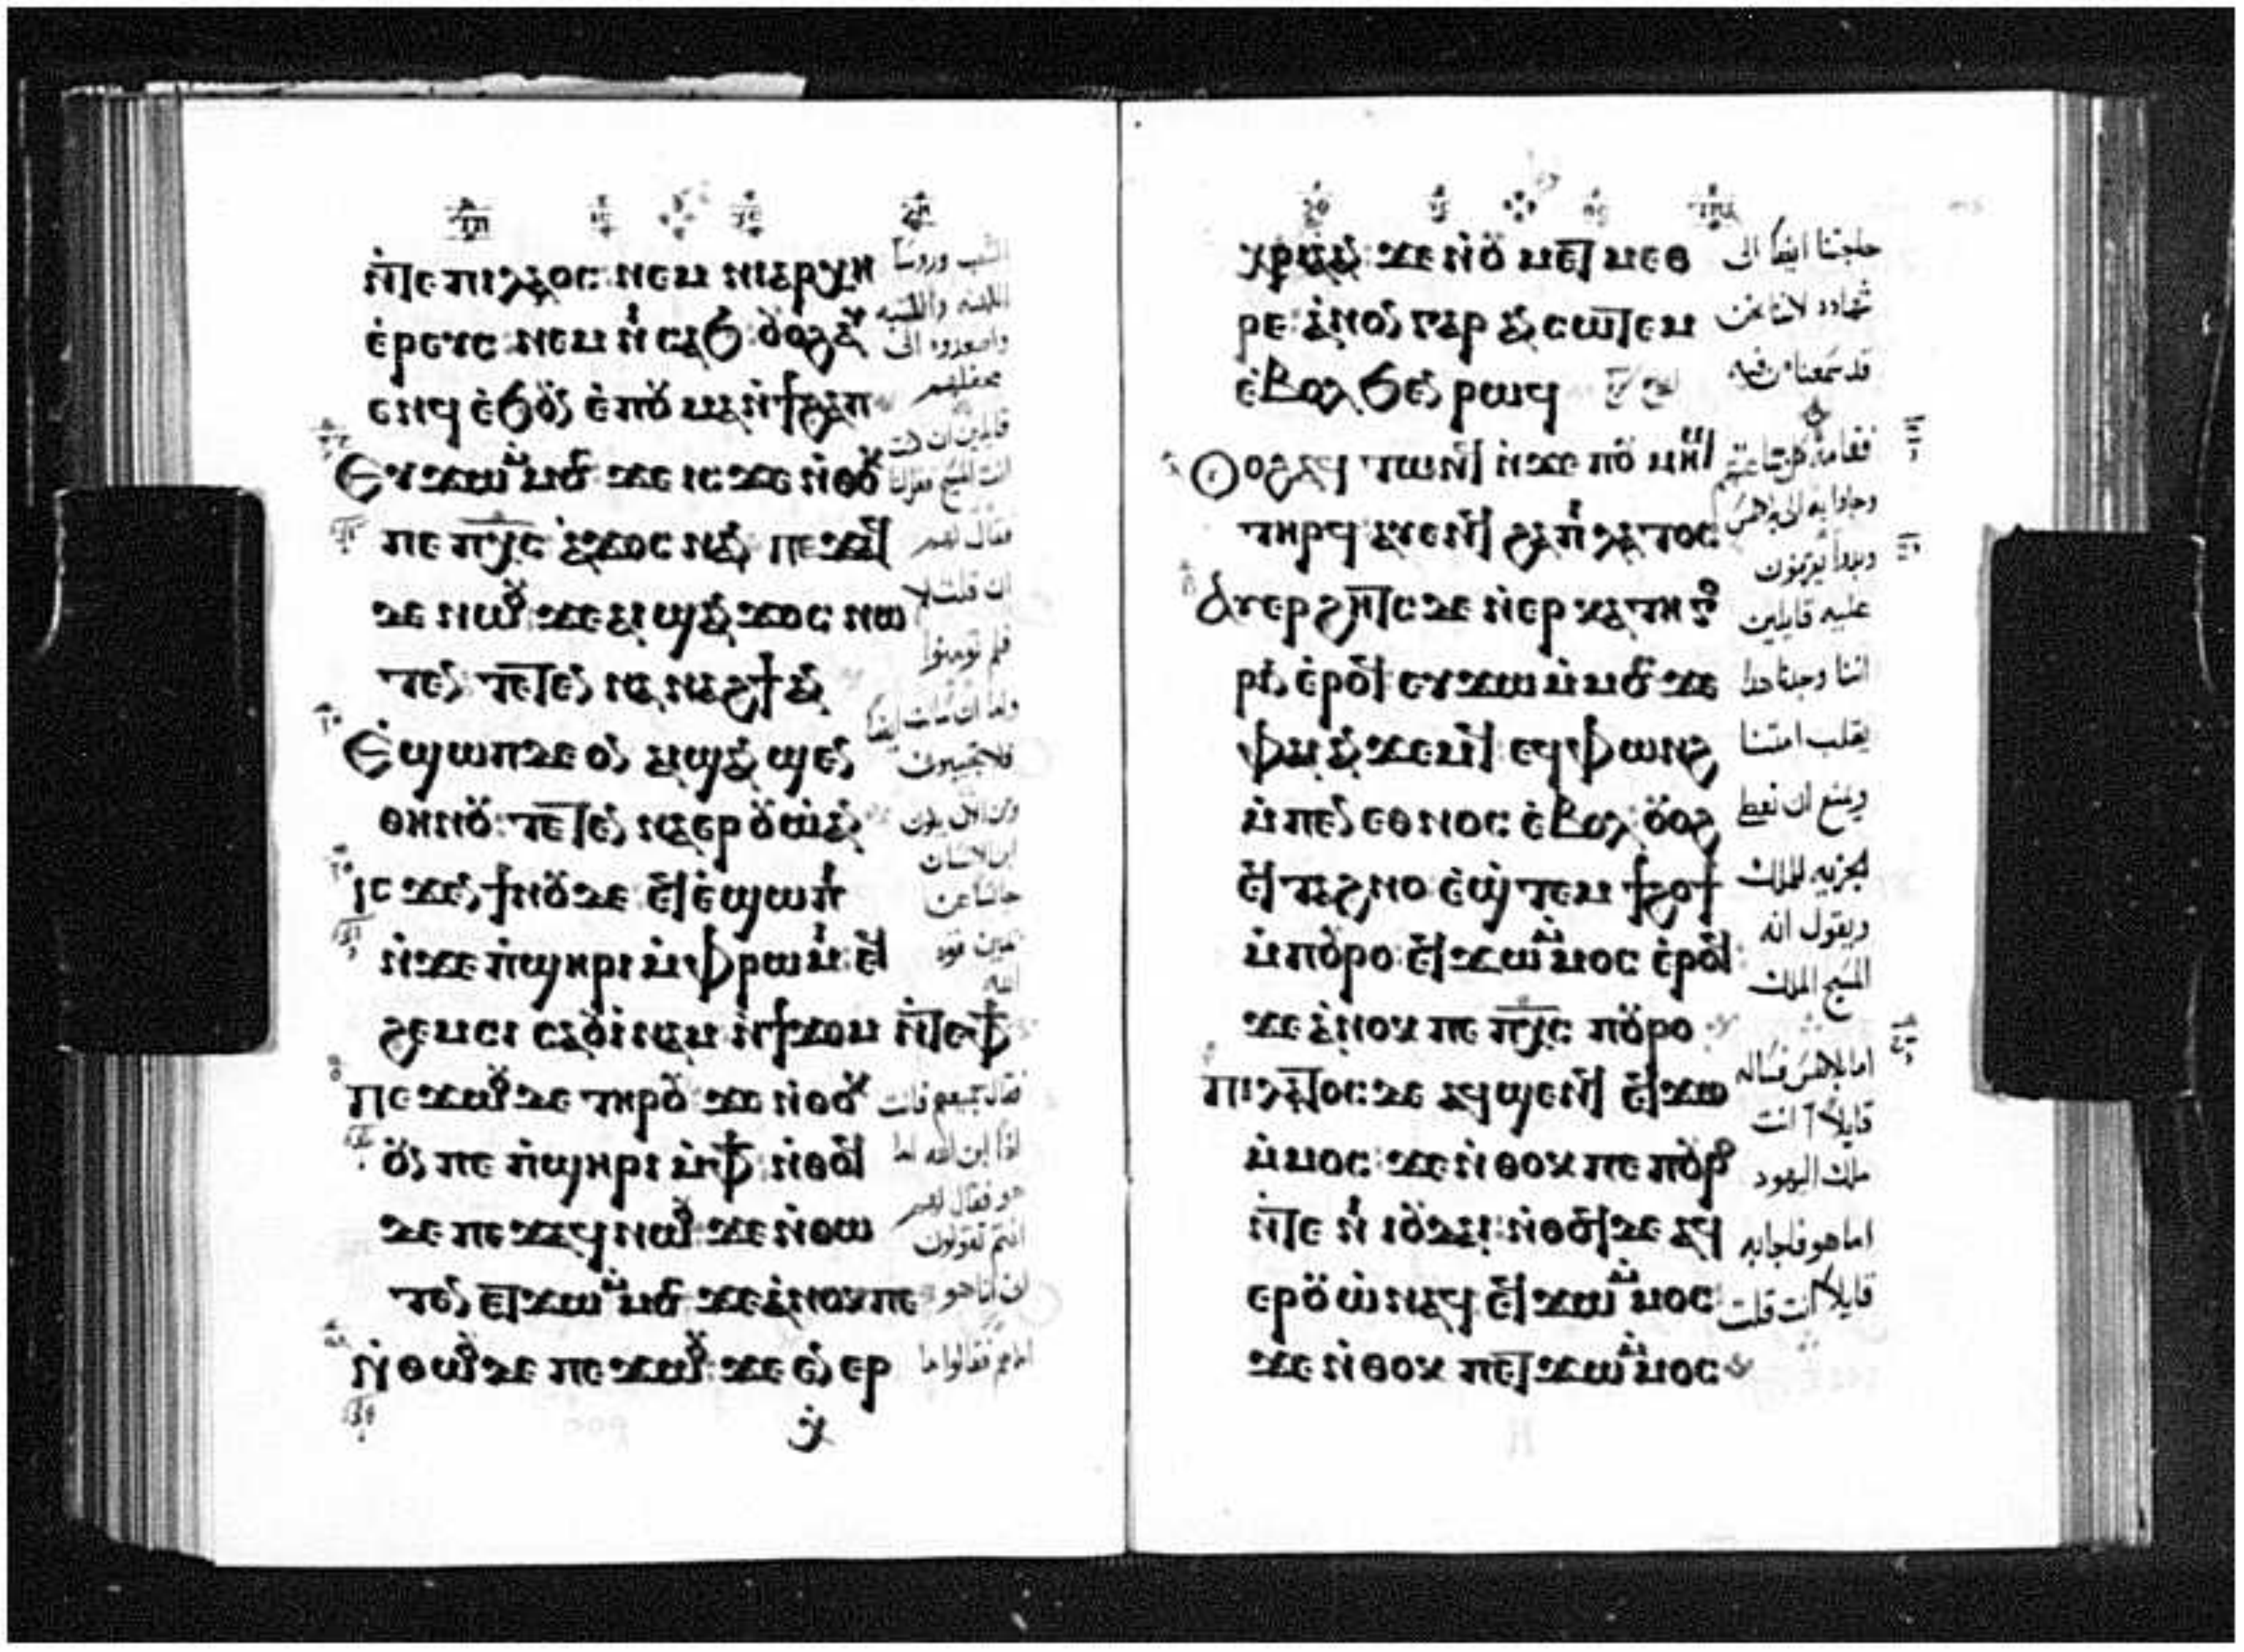 ⲛ̀ⲧⲉ ⲡⲓⲗⲁⲟⲥ ⲛⲉⲙ ⲛⲓⲁⲣⲭⲏ
ⲉ̀ⲣⲉⲩⲥ ⲛⲉⲙ ⲛⲓ ⲥⲁϧ ⲟⲩⲟϩ ⲁⲩ
ⲉⲛϥ ⲉ̀ϧⲟⲩⲛ ⲉ̀ⲡⲟⲩ ⲙⲁⲛ̀ϯϩⲁⲡ
Ⲉⲩϫⲱ ⲙ̀ⲙⲟⲥ ϫⲉ ⲓⲥϫⲉ ⲛ̀ⲑⲟⲕ
ⲡⲉ ⲡⲭ̅ⲥ̅ ⲁ̀ϫⲟⲥ ⲛⲁⲛ ⲡⲉϫⲁϥ
ⲇⲉ ⲛⲱⲟⲩ ϫⲉ ⲁⲓϣⲁⲛϫⲟⲥ ⲛⲱ
ⲧⲉⲛ ⲧⲉⲧⲉⲛ ⲛⲁ ⲛⲁϩϯ ⲁⲛ
Ⲉ̀ϣⲱⲡ ⲇⲉ ⲟⲛ ⲁⲓϣⲁⲛ ϣⲉⲛ
ⲑⲏⲛⲟⲩ ⲧⲉⲧⲉⲛ ⲛⲁⲉⲣⲟⲩⲱ̀ ⲁⲛ
Ⲓⲥϫⲉⲛ ϯⲛⲟⲩ ⲇⲉ ⲉϥⲉ̀ϣⲱⲡⲓ
ⲛ̀ϫⲉ ⲡ̀ϣⲏⲣⲓ ⲙ̀ⲫⲣⲱⲙⲓ ⲉϥ
ϩⲉⲙⲥⲓ ⲥⲁⲟⲩⲓ̀ⲛⲁⲙ ⲛ̀ϯϫⲟⲙ ⲛ̀ⲧⲉⲫϯ
Ⲡⲉϫⲱⲟⲩ ⲇⲉ ⲧⲏⲣⲟⲩ ϫⲉ ⲛ̀ⲑⲟⲕ
ⲟⲩⲛ ⲡⲉ ⲡ̀ϣⲏⲣⲓ ⲙ̀ⲫϯ ⲛ̀ⲑⲟϥ
ⲇⲉ ⲡⲉϫⲁϥ ⲛⲱⲟⲩ ϫⲉ ⲛ̀ⲑⲱ
ⲧⲉⲛ ⲉⲧϫⲱ ⲙ̀ⲙⲟⲥ ϫⲉ ⲁ̀ⲛⲟⲕ ⲡⲉ
Ⲛ̀ⲑⲱⲟⲩ ⲇⲉ ⲡⲉϫⲱⲟⲩ ϫⲉ ⲉⲛ ⲉⲣ
ⲭ̀
الشعب وروسا
الكهنه والكتبه
واصعدوه الى
محفلهم
قايلين ان كنت
انت المسيح فقل لنا
فقال لهم
ان قلت لا
فلم تومنوا
وانا ان سالت ايضا
فلا تجيبون
ومن الان يكون
ابن الانسان
جالسا عن
يمين قوه
الله
فقال جميعهم فانت
اذا ابن الله اما
هو فقال لهم
انتم تقولون
ان انا هو
اما هم فقالوا ما
ⲭⲣⲓⲁ̀ ⲁⲛ ϫⲉ ⲛ̀ⲟⲩ ⲙⲉⲧ ⲙⲉⲑ
ⲣⲉ ⲁ̀ⲛⲟⲛ ⲅⲁⲣ ⲁⲛ ⲥⲱⲧⲉⲙ
ⲉ̀ⲃⲟⲗ ϧⲉⲛ ⲣⲱϥ
Ⲟⲩⲟϩ ⲁϥ ⲧⲱⲛϥ ⲛ̀ϫⲉ ⲡⲟⲩ ⲙⲏϣ
ⲧⲏⲣϥ ⲁⲩⲉⲛϥ ϩⲁ ⲡⲓⲗⲁⲧⲟⲥ
Ⲁⲩⲉⲣϩⲏⲧⲥ ⲇⲉ ⲛ̀ⲉⲣ ⲕⲁⲧⲏⲅⲟ
ⲣⲓⲛ ⲉ̀ⲣⲟϥ ⲉⲩϫⲱ ⲙ̀ⲙⲟⲥ ϫⲉ
ⲫⲁⲓ ⲁⲛ ϫⲉⲙϥ ⲉϥⲫⲱⲛϩ
ⲙ̀ⲡⲉⲛ ⲉⲑⲛⲟⲥ ⲉ̀ⲃⲟⲗ ⲟⲩⲟϩ
ⲉϥ ⲧⲁϩⲛⲟ ⲉ̀ϣ̀ⲧⲉⲙ ϯϩⲱϯ
ⲙ̀ⲡⲟⲩⲣⲟ ⲉϥϫⲱ ⲙ̀ⲙⲟⲥ ⲉ̀ⲣⲟϥ
ϫⲉ ⲁ̀ⲛⲟⲕ ⲡⲉ ⲡⲭ̅ⲥ̅ ⲡⲟⲩⲣⲟ
Ⲡⲓⲗⲁⲧⲟⲥ ⲇⲉ ⲁϥϣⲉⲛϥ ⲉϥϫⲱ
ⲙ̀ⲙⲟⲥ ϫⲉ ⲛ̀ⲑⲟⲕ ⲡⲉ ⲡⲟⲩⲣⲟ
ⲛ̀ⲧⲉ ⲛⲓ ⲓⲟⲩⲇⲁⲓ ⲛ̀ⲑⲟϥ ⲇⲉ ⲁϥ
ⲉⲣⲟⲩⲱ̀ ⲛⲁϥ ⲉϥϫⲱ ⲙ̀ⲙⲟⲥ
ϫⲉ ⲛ̀ⲑⲟⲕ ⲡⲉⲧϫⲱ ⲙ̀ⲙⲟⲥ
حاجتنا ايضا الى
شهاده لاننا نحن
قد سمعنا من فيه
فقام كل جماعتهم
وجاوا به الى بيلاطس
وبدوا يقرفون
عليه قايلين
اننا وجدنا هذا
يقلب امتنا
ويمنع ان نعطي
الجزيه للملك
ويقول انه
المسيح الملك
اما بيلاطس فساله
قايلا انت
ملك اليهود
اما هو فاجابه
قايلا انت قلت